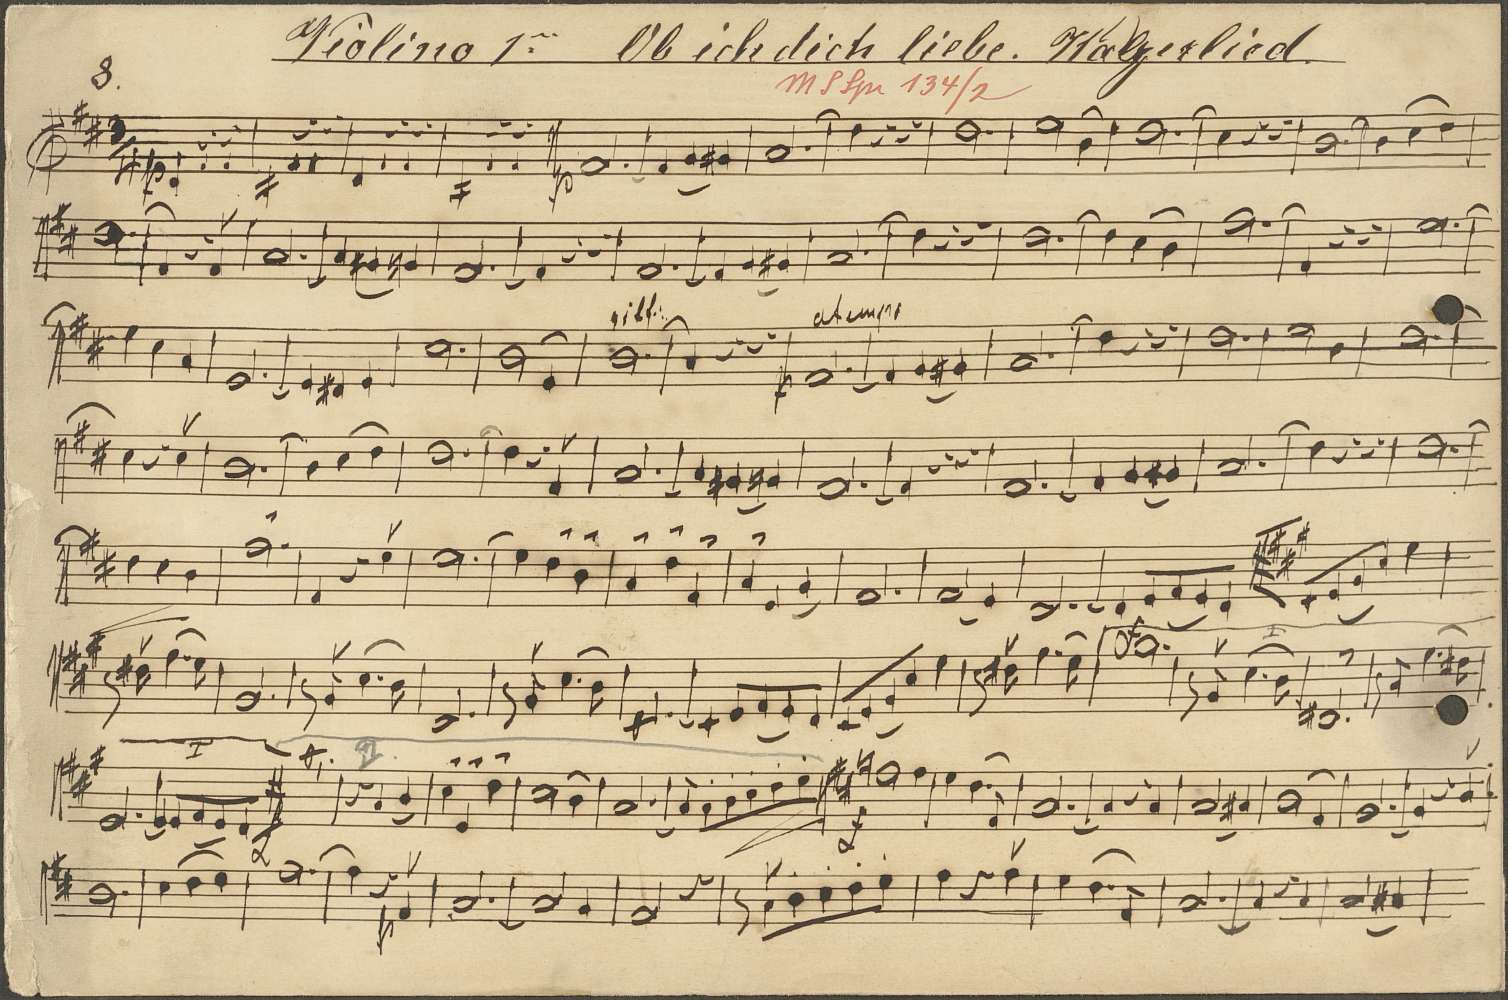 Violino 1mo Ob ich dich liebe. Walzerlied.
3.
MS Spr 134/2
p p
ritt.
a tempo
p
f I
I 2.
f
p